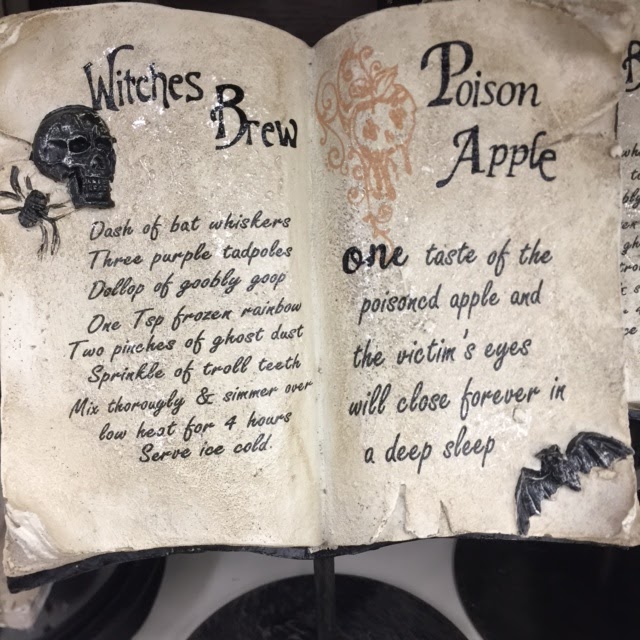 Witches
Brew
Dash of bat whiskers
Three purple tadpoles
Dollop of goobly goop
One Tsp frozen rainbow
Two pinches of ghost dust
Sprinkle of troll teeth
Mix thorougly & simmer over
low heat for 4 hours
Serve ice cold
Poison
Apple
one taste of the
poisoned apple and
the victim's eyes
will close forever in
a deep sleep